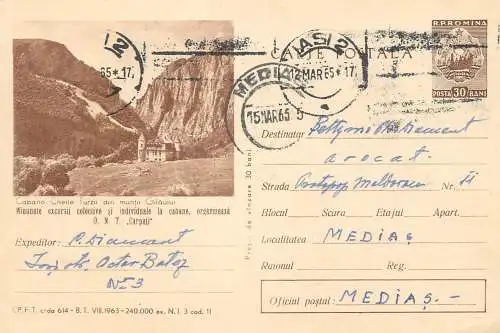 R.P.ROMINA
CARTE POSTALA
POSTA 30 BANI
IASI 2
12 MAR 65 * 17
65 * 17
MEDIAȘ
15 MAR 65 5
Cabana Cheile Turzii din munții Gilăului
Minunate excursii colective și individuale la cabane, organizează
O. N. T. „Carpați"
Expeditor: P. Diamant
Iași str.
No 3
C.P.F.T. c-da 614 - B.T. VIII.1963 - 240.000 ex. N.I. 3 cod. 11
Preț de vînzare 30 bani
Destinatar Diamant
avocat
Strada Nr. 51
Blocul Scara Etajul Apart.
Localitatea MEDIAȘ
Raionul Reg.
Oficiul poștal: MEDIAȘ.-